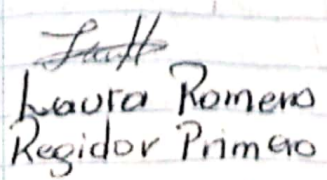 Laura Romero
Regidor Primero